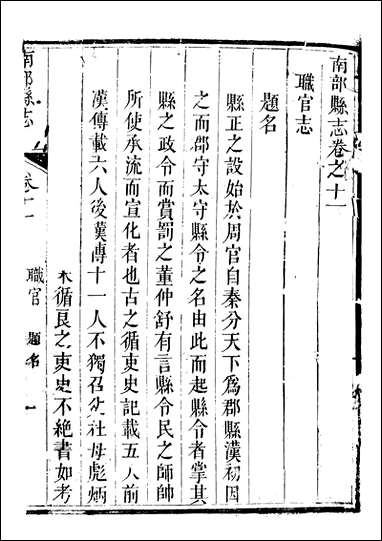 南部縣志卷之十一
職官志
題名
縣正之設始於周官自秦分天下為郡縣漢初因
之而郡守太守縣令之名由此而起縣令者掌其
縣之政令而賞罰之董仲舒有言縣令民之師帥
所使承流而宣化者也古之循吏史記載五人前
漢傳載六人後漢傳十一人不獨召父杜母彪炳
循良之吏史不絕書如考
南部縣志
卷十一
職官
題名
一